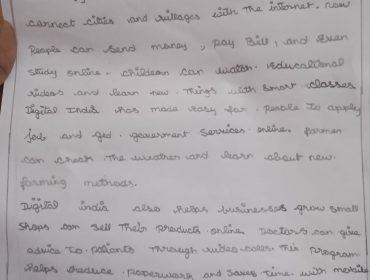 connect cities and villages with The internet. now
People can send money, pay Bill, and Even
study online. children can watch. Educational
videos and learn new. Things with smart classes
Digital India has made easy for. people To apply
job and get. goverment services. online. farmer
can check The weather and learn about new.
farming methods.
Digital india also helps businesses grow small
Shops can sell Their products. online. Doctors can give
advice To. patients Through video. calls. This program
helps reduce. paperwork and saves Time with